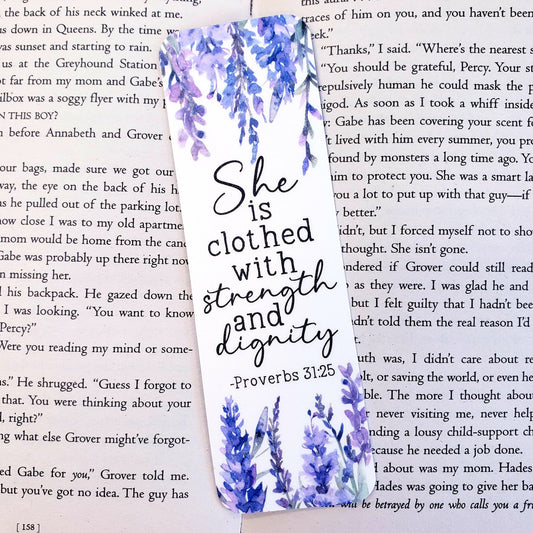 the back of his neck winked at me.
s down in Queens. By the time we
was sunset and starting to rain.
us at the Greyhound Station
ot far from my mom and Gabe's
ilbox was a soggy flyer with my
N THIS BOY?
n before Annabeth and Grover
our bags, made sure we got our
way, the eye on the back of his h
as he pulled out of the parking lot.
how close I was to my old apartme
mom would be home from the cand
Gabe was probably up there right now
n missing her.
d his backpack. He gazed down the
I was looking. "You want to know
Percy?"
Were you reading my mind or some-
s." He shrugged. "Guess I forgot to
that. You were thinking about your
d, right?"
ng what else Grover might've forgot-
ed Gabe for you," Grover told me.
but you've got no idea. The guy has
[ 158 ]
She
is
clothed
with
strength
and
dignity
-Proverbs 31:25
traces of him on you, and you haven't been
eek."
"Thanks," I said. "Where's the nearest s
"You should be grateful, Percy. Your st
repulsively human he could mask the p
igod. As soon as I took a whiff inside
Gabe has been covering your scent fo
t lived with him every summer, you pro
found by monsters a long time ago. Yo
im to protect you. She was a smart la
you a lot to put up with that guy—if
better."
dn't, but I forced myself not to show
thought. She isn't gone.
ondered if Grover could still read
as they were. I was glad he and
but I felt guilty that I hadn't bee
dn't told them the real reason I'd
uth was, I didn't care about re
lt, or saving the world, or even he
ble. The more I thought abou
r never visiting me, never help
nding a lousy child-support ch
ecause he needed a job done.
d about was my mom. Hades
ades was going to give her ba
will be betrayed by one who calls you a fr